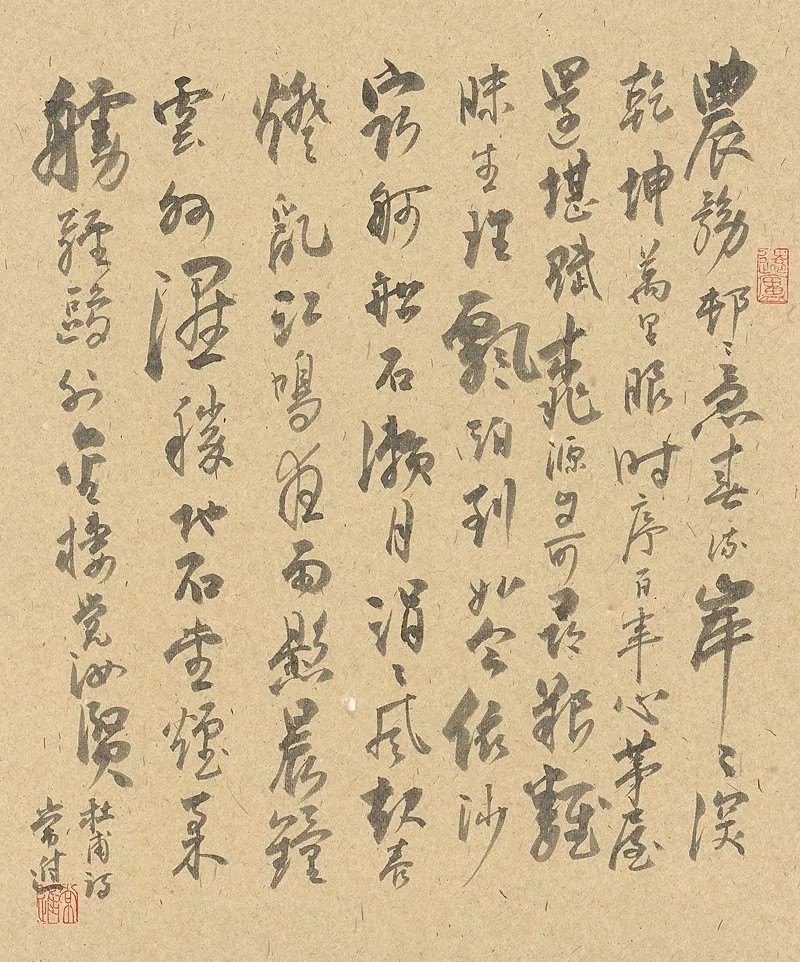 農務邨〻急春流岸〻深
乾坤萬里眼时序百年心茅屋
還堪賦桃源自可尋艱難
昧生理飄泊到如今依沙
宿舸船石瀨月涓〻風起春
燈亂江鳴夜雨懸晨鐘
雲外溼勝地石堂煙柔
艣輕鷗外含悽覺汝賢
杜甫詩
常進